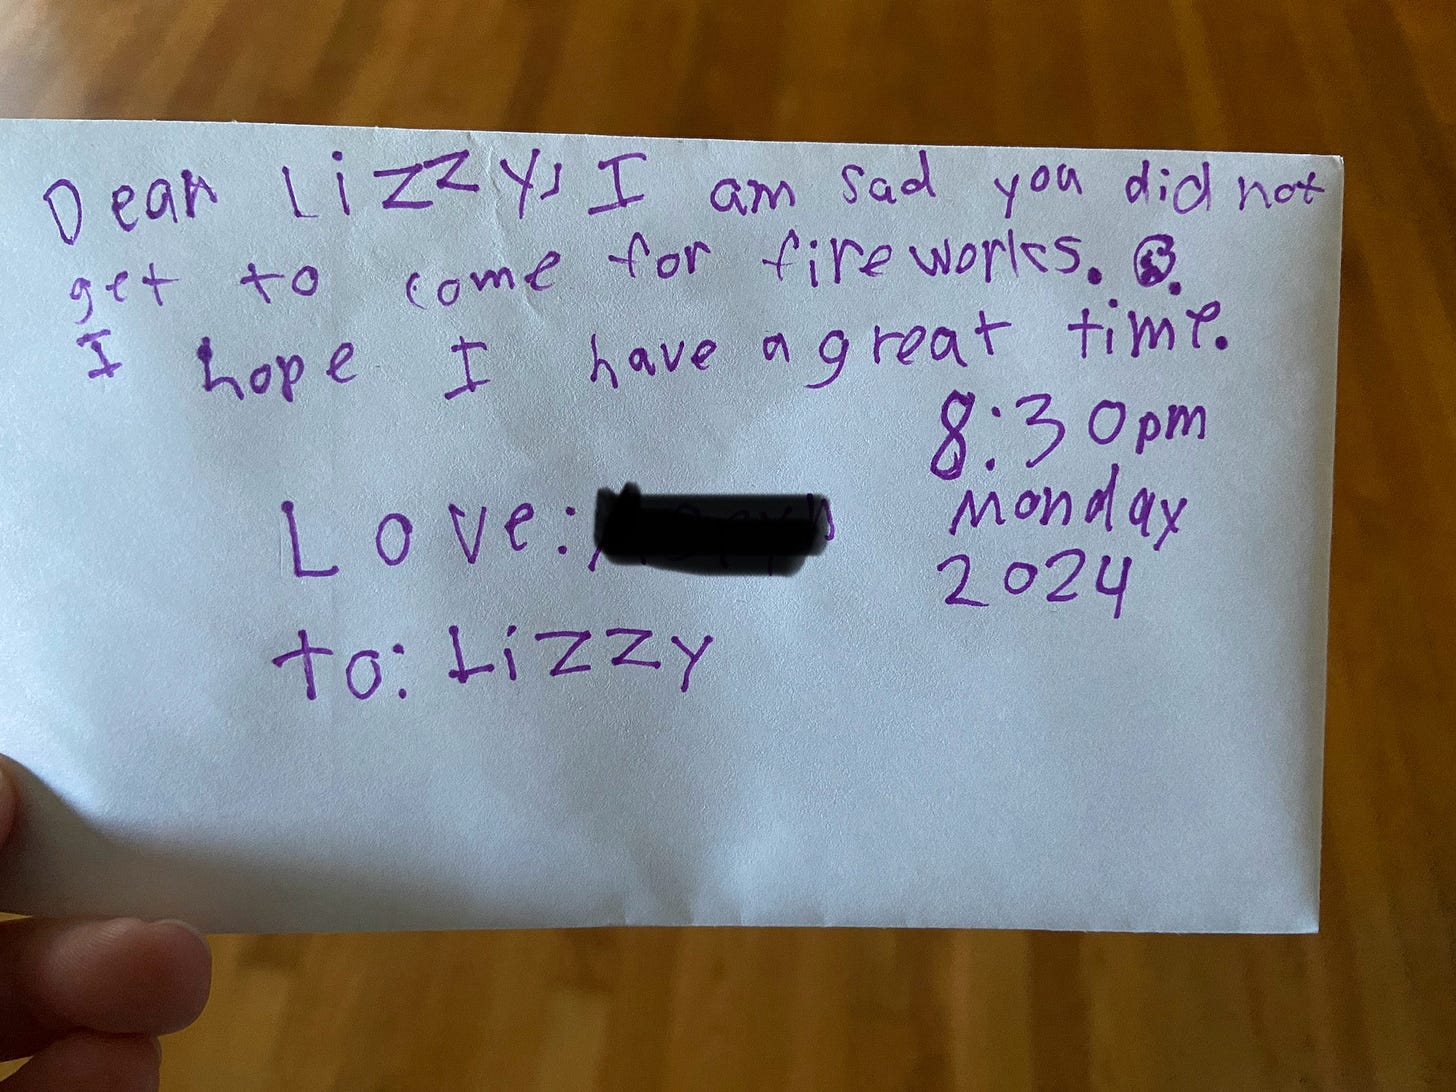 Dear Lizzy, I am sad you did not
get to come for fireworks. ☹.
I hope I have a great time.
8:30pm
Monday
2024
Love:
to: Lizzy